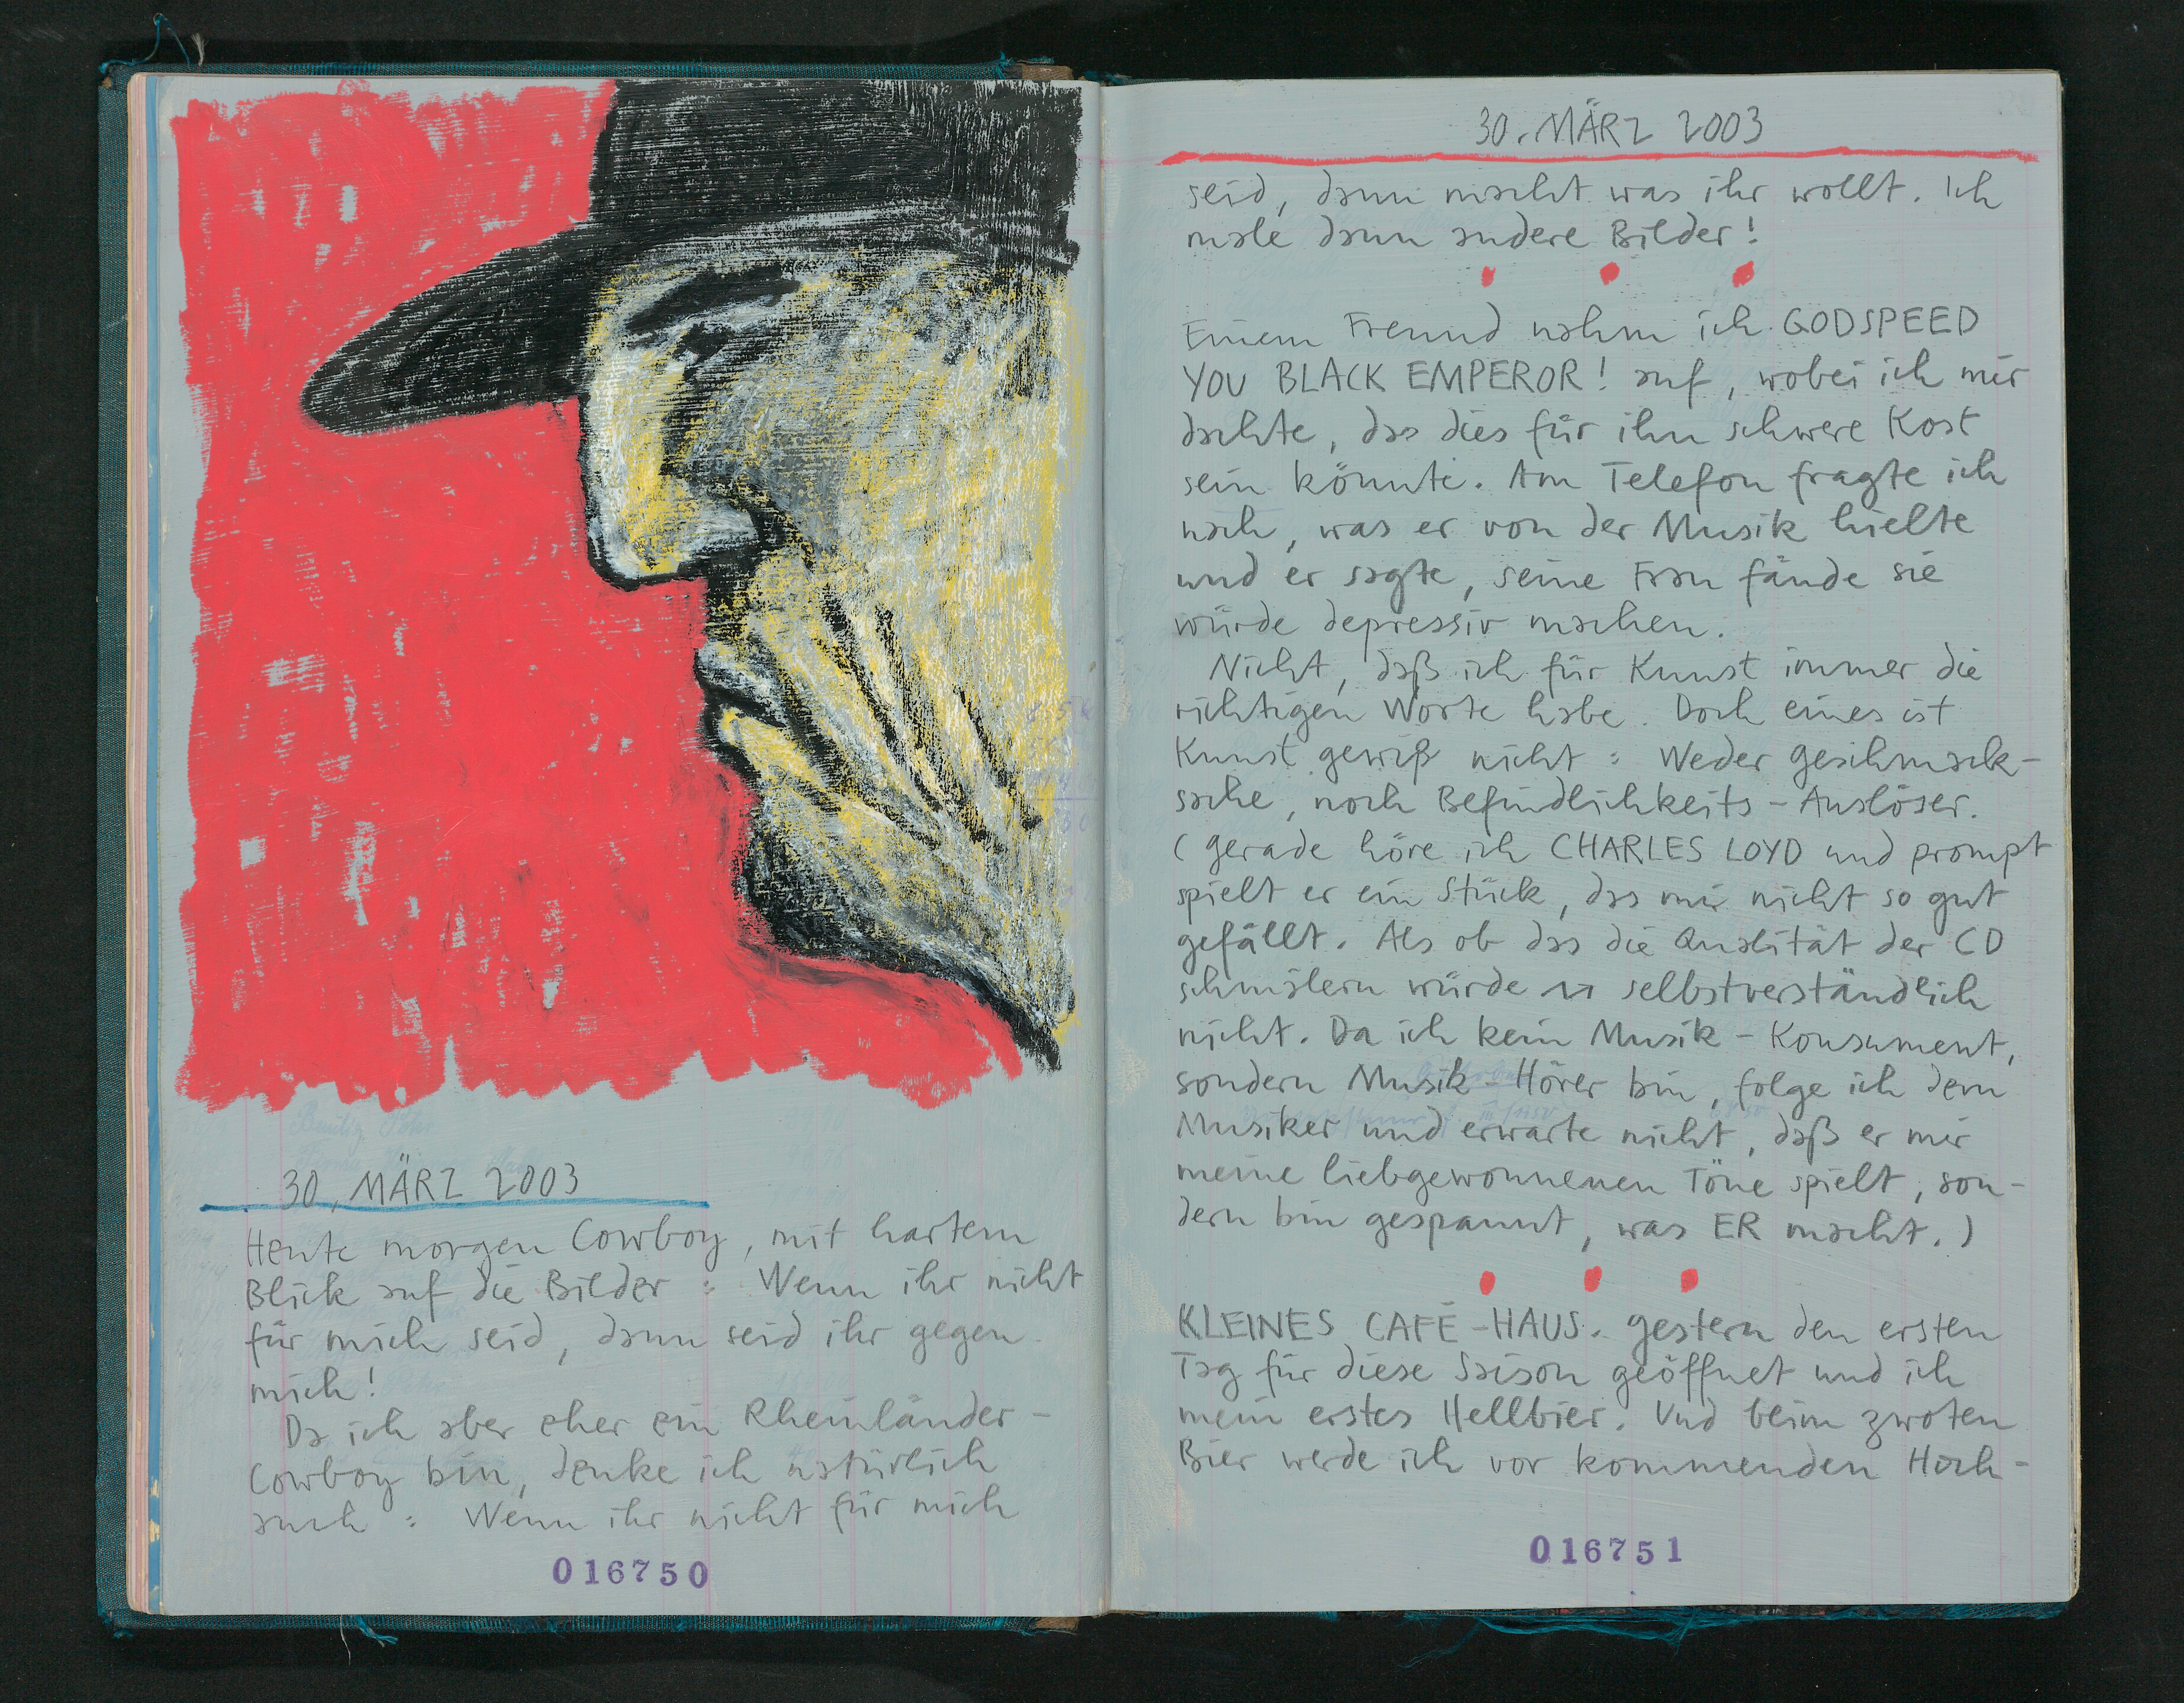 30. MÄRZ 2003
Heute morgen Cowboy, mit hartem
Blick auf die Bilder : Wenn ihr nicht
für mich seid, dann seid ihr gegen
mich!
Da ich aber eher ein Rheinländer-
Cowboy bin, denke ich natürlich
auch : Wenn ihr nicht für mich
016750
30. MÄRZ 2003
seid, dann macht was ihr wollt. Ich
male dann andere Bilder!
Einem Freund nahm ich GODSPEED
YOU BLACK EMPEROR! auf, wobei ich mir
dachte, das dies für ihn schwere Kost
sein könnte. Am Telefon fragte ich
nach, was er von der Musik hielte
und er sagte, seine Frau fände sie
würde depressiv machen.
Nicht, daß ich für Kunst immer die
richtigen Worte habe. Doch eines ist
Kunst gewiß nicht : Weder Geschmack-
sache, noch Befindlichkeits-Auslöser.
(Gerade höre ich CHARLES LOYD und prompt
spielt er ein Stück, das mir nicht so gut
gefällt. Als ob das die Qualität der CD
schmälern würde selbstverständlich
nicht. Da ich kein Musik-Konsument,
sondern Musik-Hörer bin, folge ich dem
Musiker und erwarte nicht, daß er mir
meine liebgewonnenen Töne spielt, son-
dern bin gespannt, was ER macht.)
KLEINES CAFÉ-HAUS. Gestern den ersten
Tag für diese Saison geöffnet und ich
mein erstes Hellbier. Und beim zwoten
Bier werde ich vor kommenden Hoch-
016751